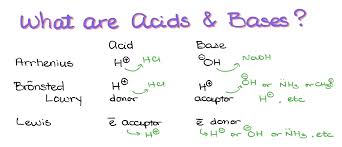 What are Acids & Bases?
Acid Base
Arrhenius H⊕ HCl ⊖OH NaOH
Brönsted Lowry H⊕ donor HCl H⊕ acceptor ⊖OH or N̈H₃ or CH₃⊖ H⊕, etc
Lewis ē acceptor H⊕ ē donor H⊖ or ⊖OH or N̈H₃, etc